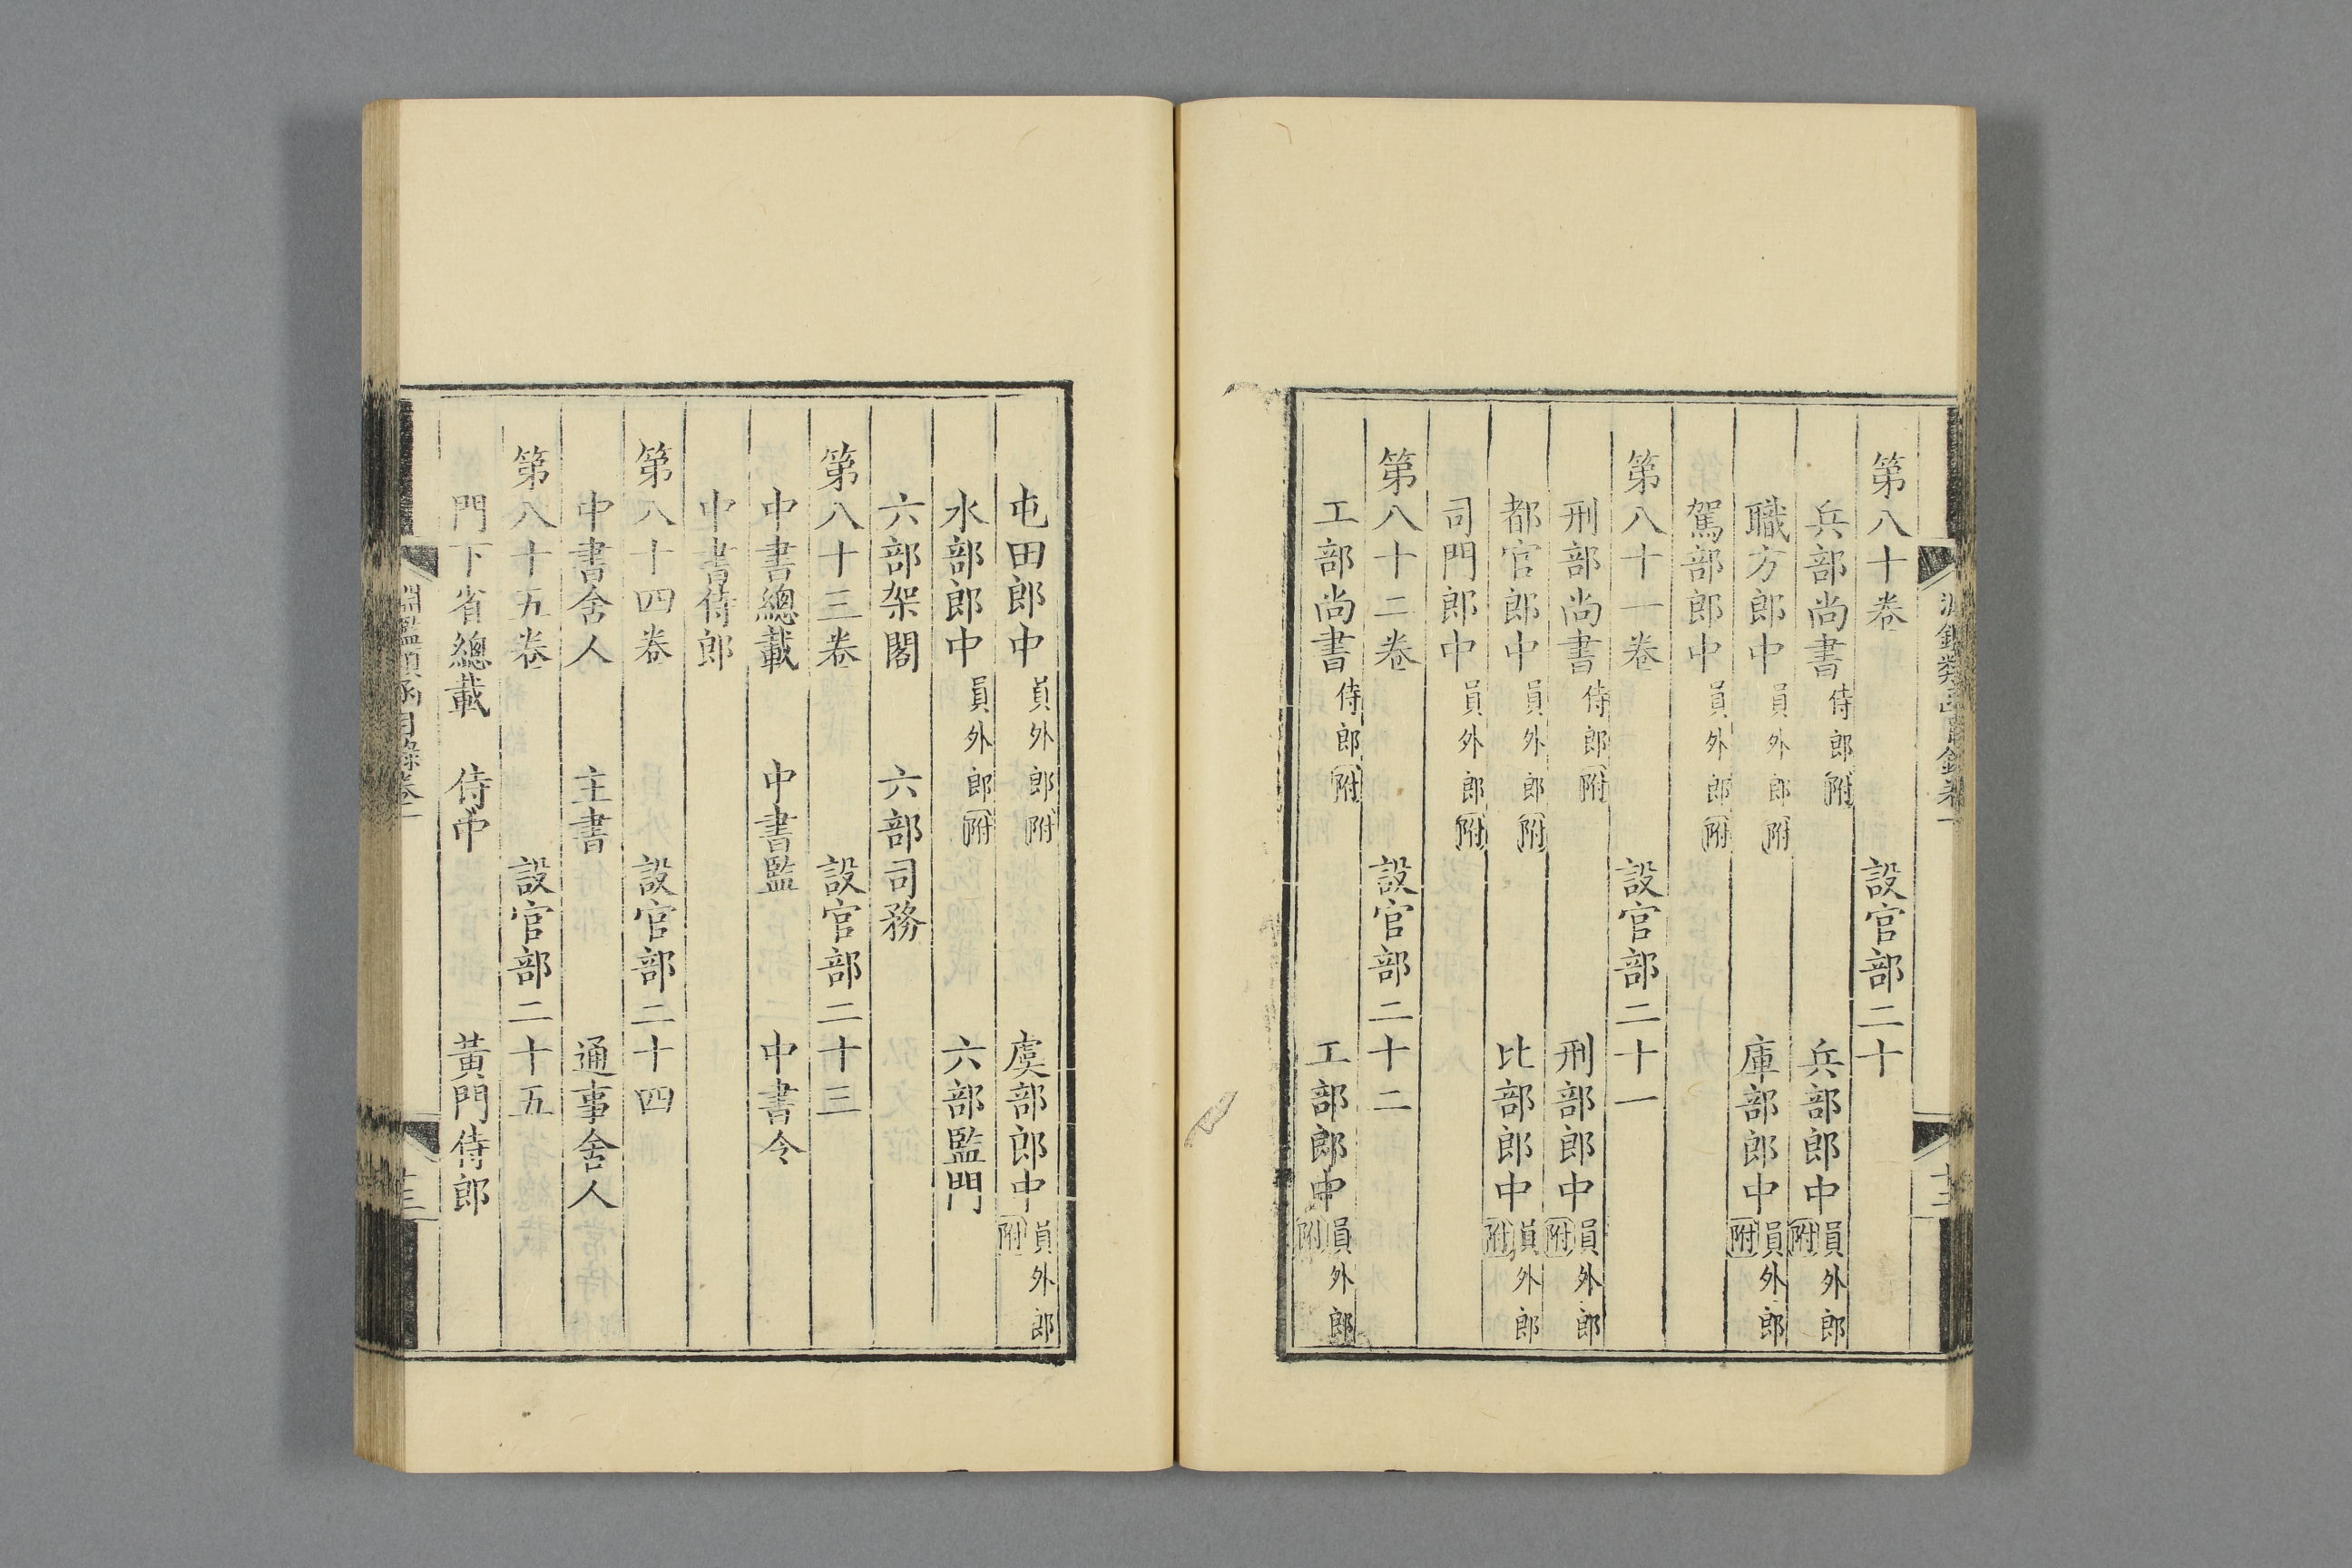 第八十卷　設官部二十
兵部尚書侍郎附　兵部郎中員外郎附
職方郎中員外郎附　庫部郎中員外郎附
駕部郎中員外郎附
第八十一卷　設官部二十一
刑部尚書侍郎附　刑部郎中員外郎附
都官郎中員外郎附　比部郎中員外郎附
司門郎中員外郎附
第八十二卷　設官部二十二
工部尚書侍郎附　工部郎中員外郎附
屯田郎中員外郎附　虞部郎中員外郎附
水部郎中員外郎附　六部監門
六部架閣　六部司務
第八十三卷　設官部二十三
中書總載　中書監　中書令
中書侍郎
第八十四卷　設官部二十四
中書舍人　主書　通事舍人
第八十五卷　設官部二十五
門下省總載　侍中　黃門侍郎
淵鑑類函目錄卷一